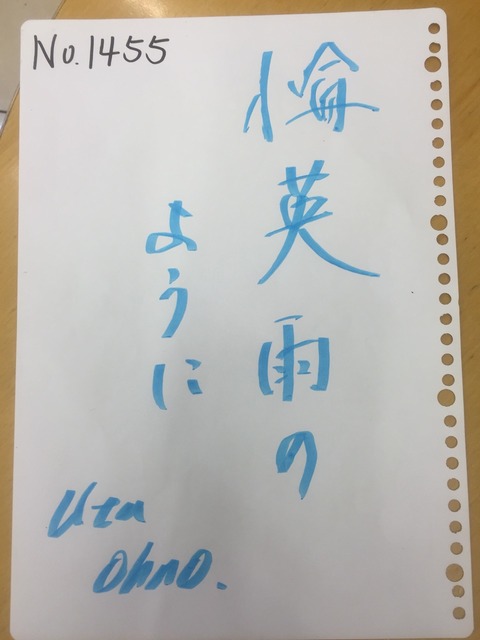 No.1455
惀英雨の
ように
Uta
Ohno.